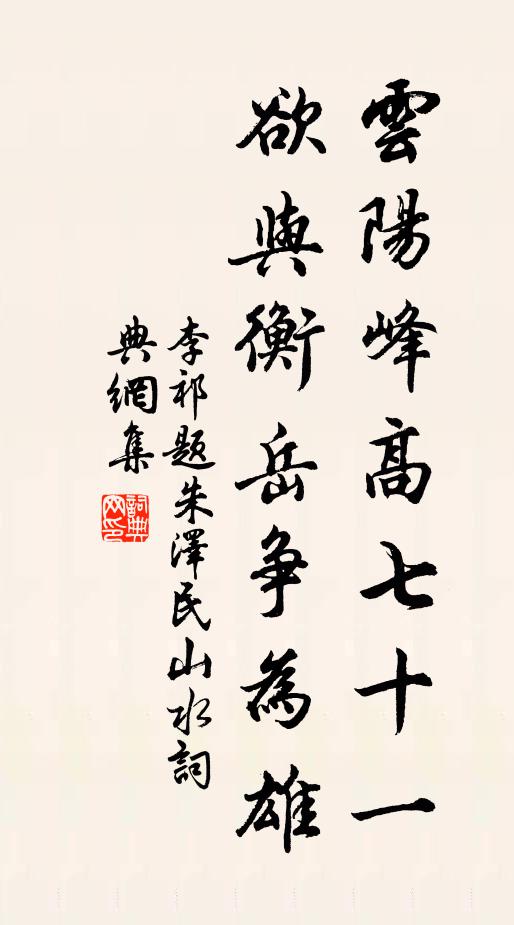 雲陽峰高七十一
欲與衡岳爭為雄
李祁題朱澤民山水詞
典網集
詞典網印